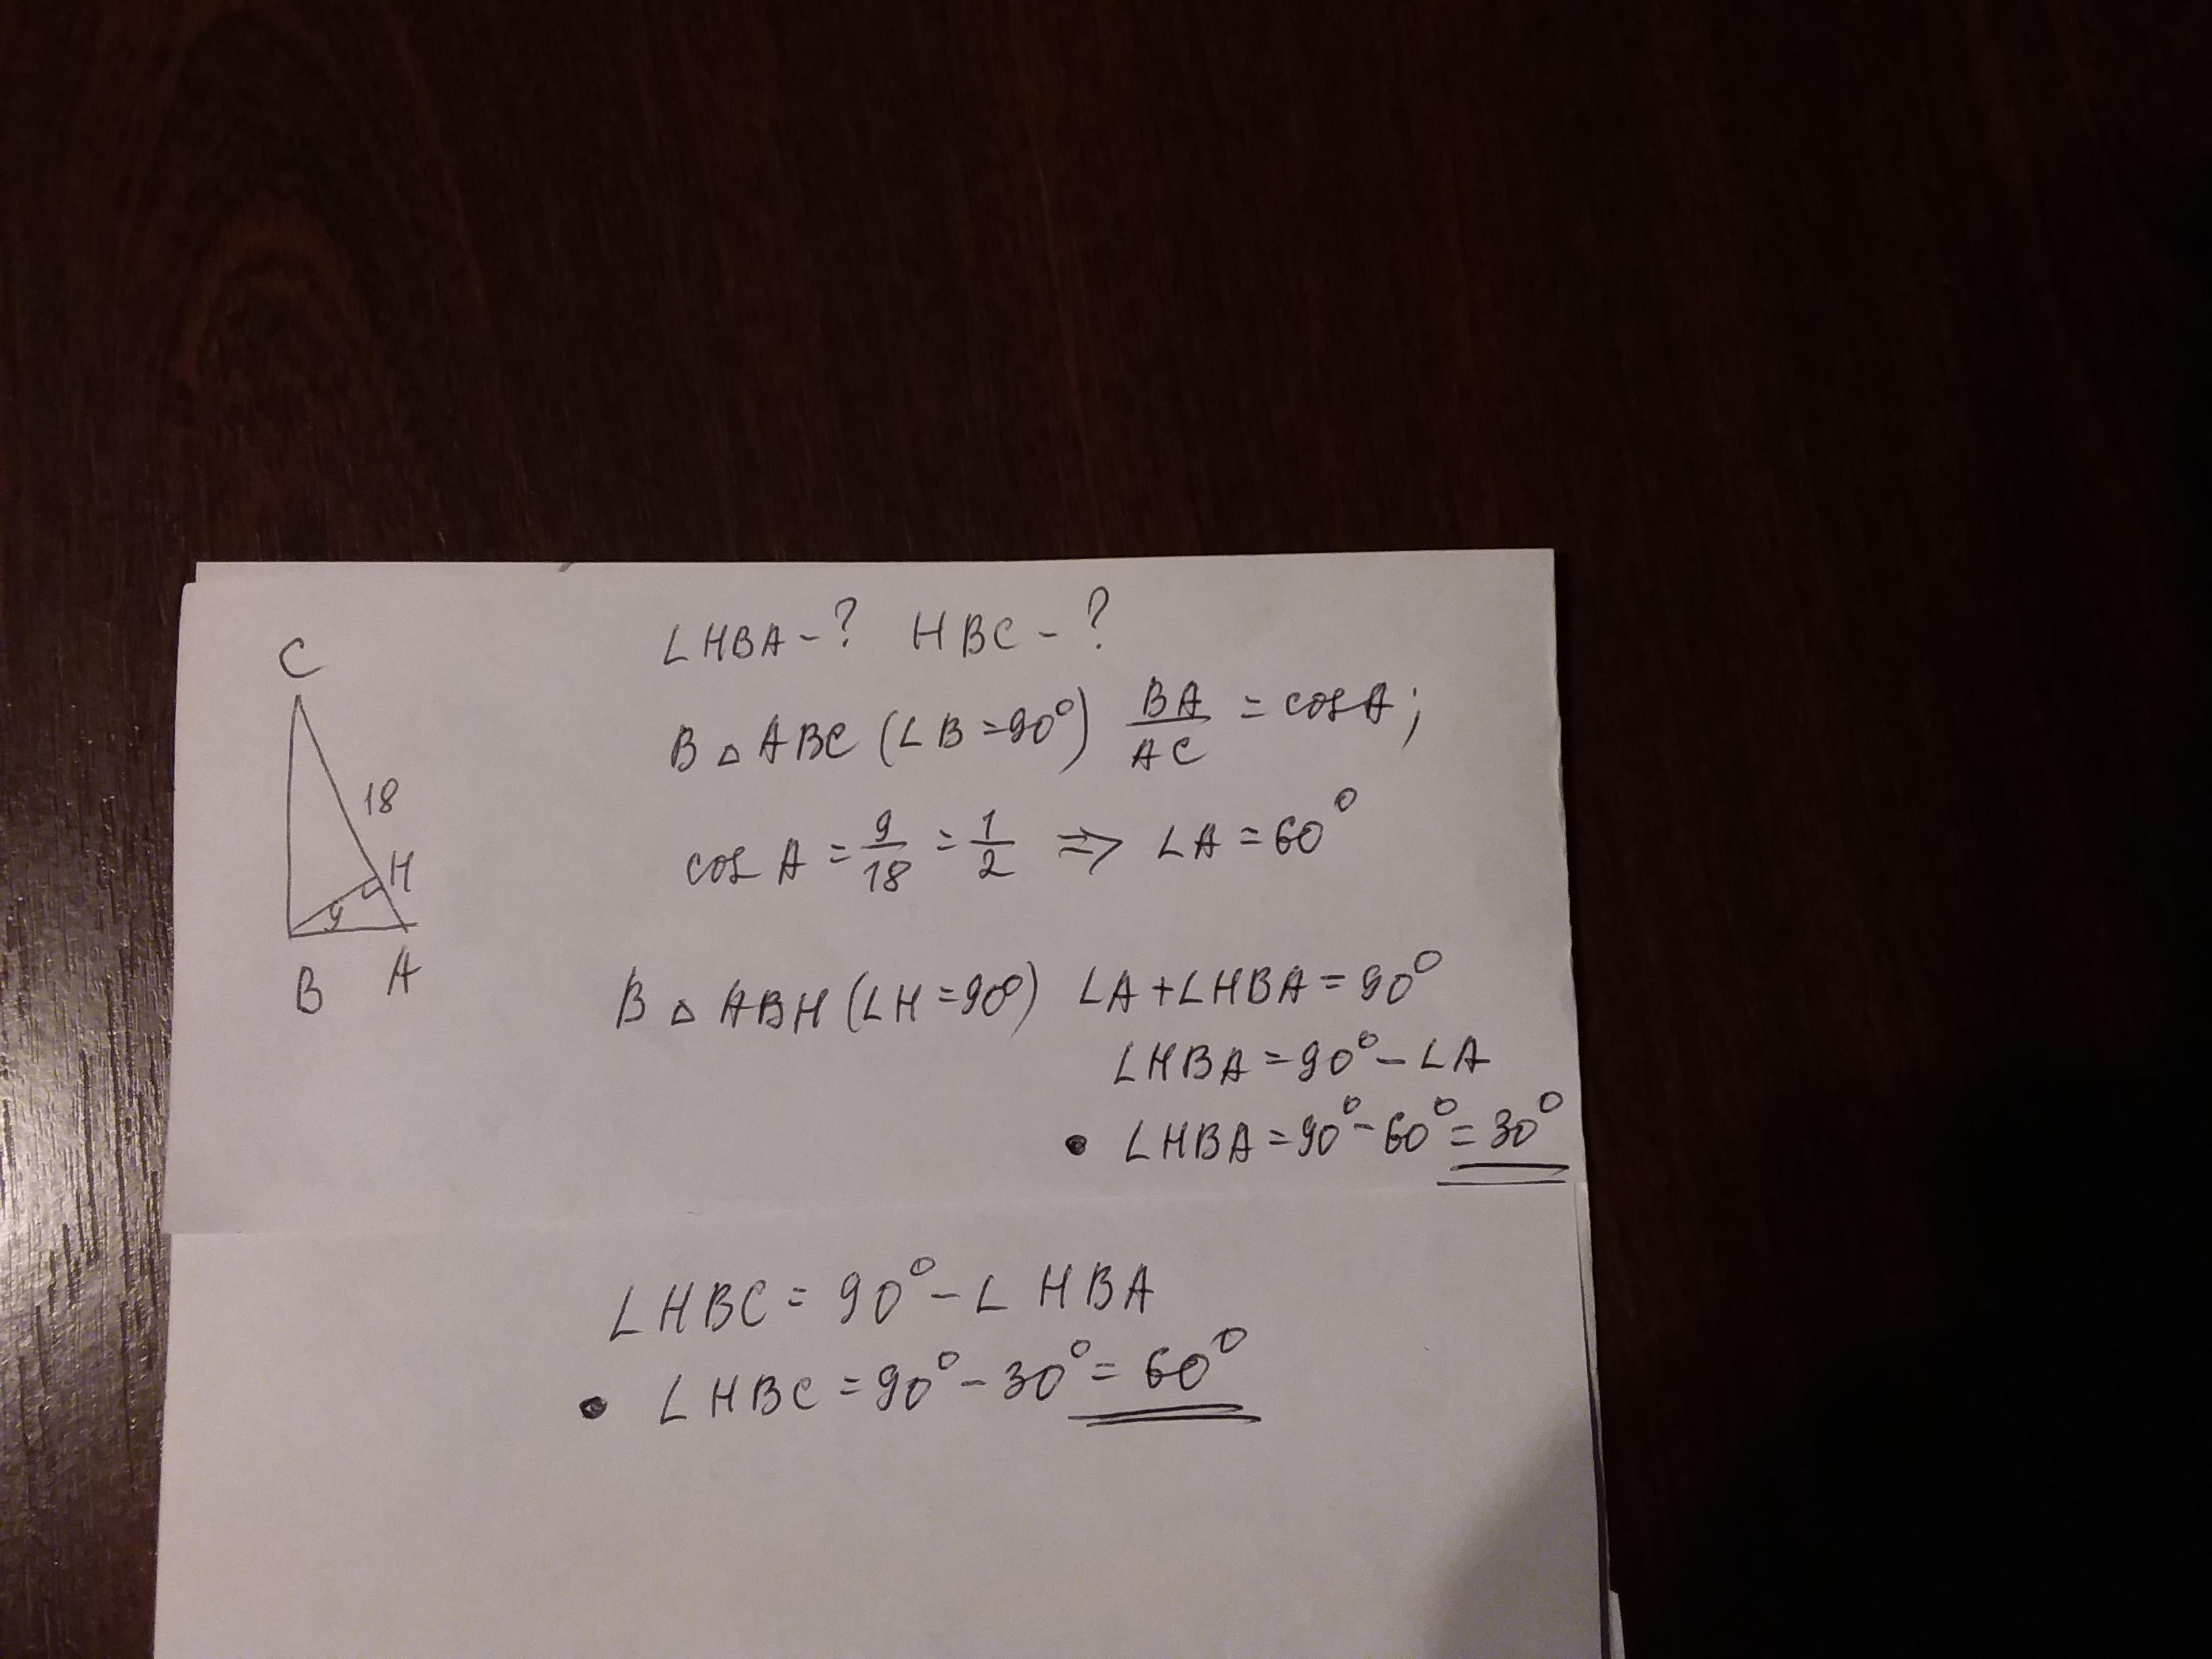 C
18
H
9
B A
∠HBA - ? HBC - ?
В △ ABC (∠B = 90°) BA/AC = cos A;
cos A = 9/18 = 1/2 => ∠A = 60°
В △ ABH (∠H = 90°) ∠A + ∠HBA = 90°
∠HBA = 90° - ∠A
• ∠HBA = 90° - 60° = 30°
∠HBC = 90° - ∠ HBA
• ∠HBC = 90° - 30° = 60°